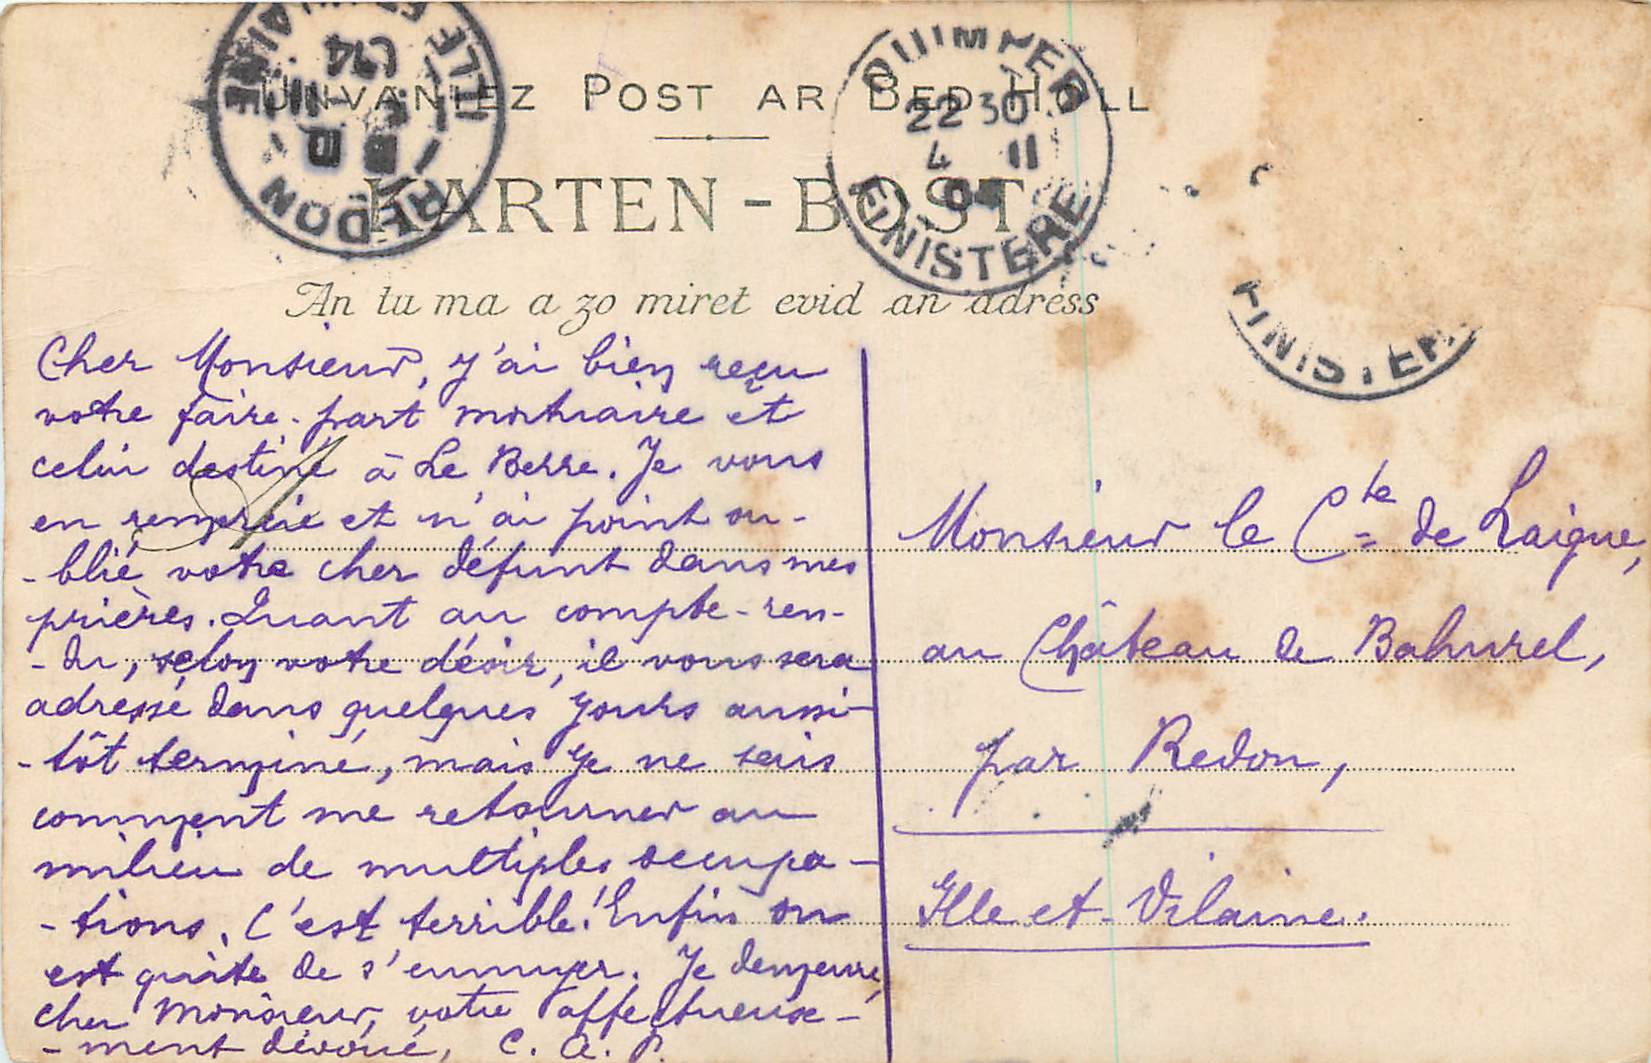 Unvaniez Post ar Bed Holl
KARTEN-BOST
An tu ma a zo miret evid an adress
REDON
ILLE ET VILAINE
QUIMPER
22 30
4 11
04
FINISTERE
FINISTERE
Cher Monsieur, j'ai bien reçu
votre faire-part mortuaire et
celui destiné à Le Berre. Je vous
en remercie et n'ai point ou-
-blié votre cher défunt dans mes
prières. Quant au compte-ren-
-du, selon votre désir, il vous sera
adressé dans quelques jours aussi-
-tôt terminé, mais je ne sais
comment me retourner au
milieu de multiples occupa-
-tions. C'est terrible! Enfin on
est quitte de s'ennuyer. Je demeure,
cher Monsieur, votre affectueuse-
-ment dévoué, C. A. P.
Monsieur le Cte de Laigue,
au Château de Bahurel,
par Redon,
Ille-et-Vilaine.